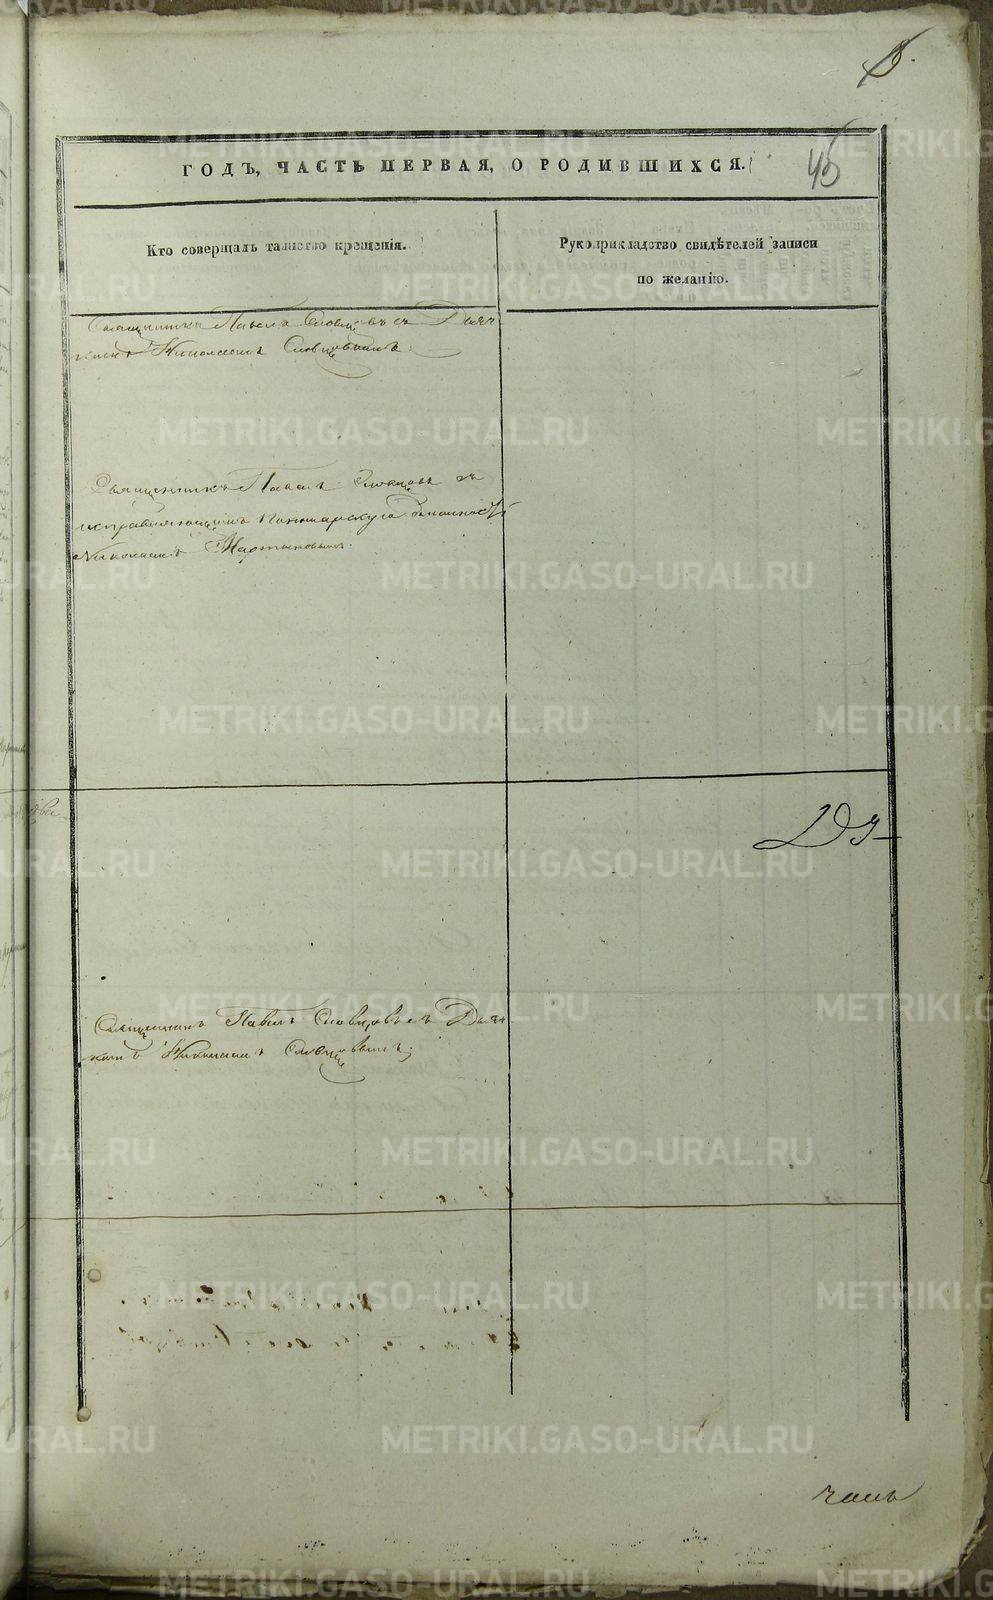 METRIKI.GASO-URAL.RU
45
ГОДЪ, ЧАСТЬ ПЕРВАЯ, О РОДИВШИХСЯ.
Кто совершалъ таинство крещенія.
Рукоприкладство свидѣтелей записи
по желанію.
Священникъ Павелъ Словцовъ съ Дьяч-
комъ Николаемъ Словцовымъ.
Священникъ Павелъ Словцовъ съ
исправляющимъ Пономарскую должность
Николаемъ Мартыновымъ.
Священникъ Павелъ Словцовъ съ Дьяч
комъ Николаемъ Словцовымъ;